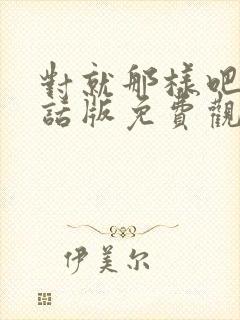 對就那樣吧
話版免費觀
伊美尔